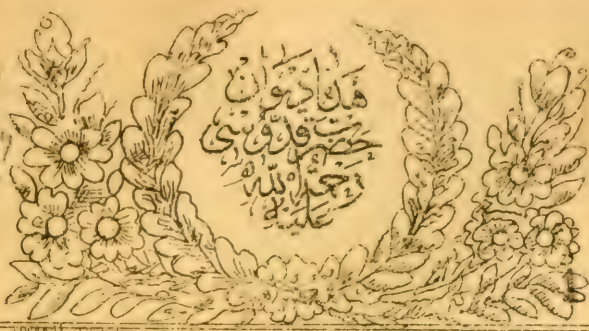 هذا ديوان
حضرت قدوسى
رحمة الله
عليه